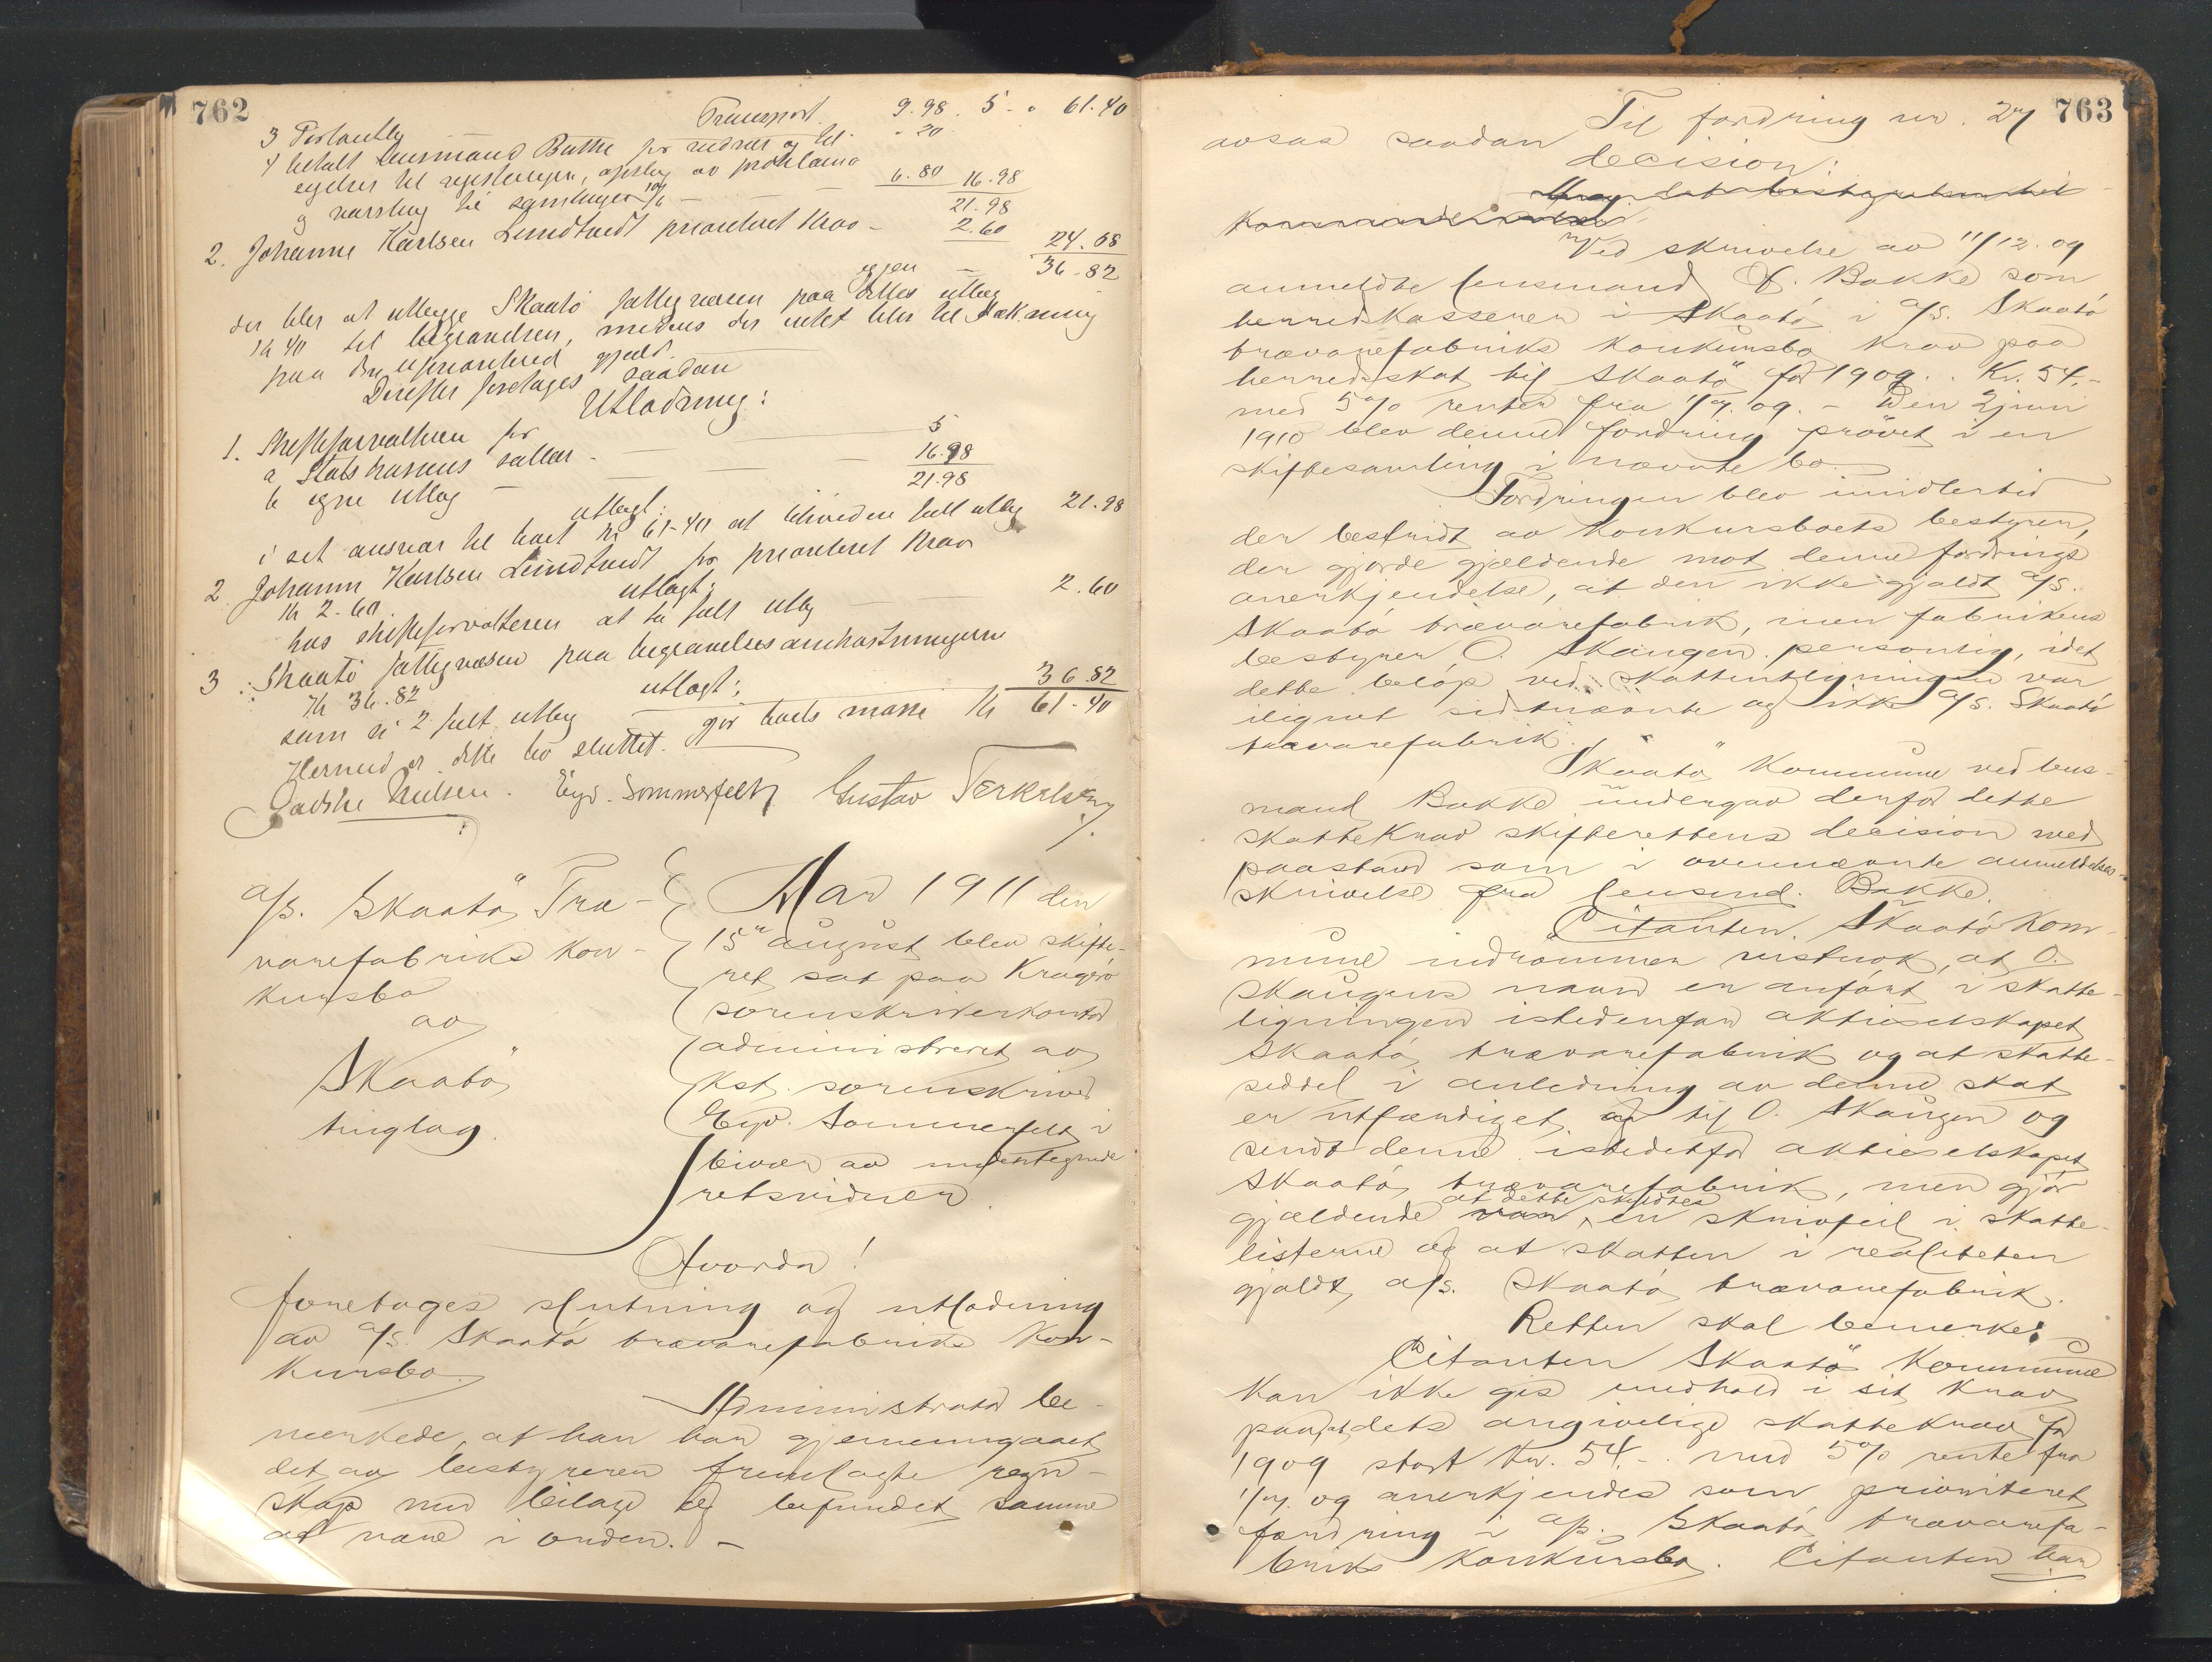 762
Transport. 9.98. 5 - " 61.40
3 Portoutlæg " 20
4 betalt lensmand Bakke for
eydser til registeringen, opslag av proklama
og varsling til samlingen 10/6 — 6.80 16.98
21.98
2. Johanne Karlsen Lundtvedt prioritert krav - 2.60 24.58
igjen — 36-82
der blir at utlegge Skaatö fattigvæsen paa dettes utlæg
til begravelsen, medens der intet blir til dækning
paa den uprioriterede gjæld.
Derefter foretages saadan
Utlodning:
1. Skifteforvalteren for
a, Statskassens sallær - 5
b egne utlæg — 16.98
21.98
utlagt:
i set ansvar til boet Kr 61-40 at beholde fuldt utlæg 21.98
2. Johanne Karlsen Lundtvedt for prioritert krav
Kr 2-60. utlagt:
hos skifteforvalteren at ta fuldt utlæg — 2.60
3. Skaatö fattigvæsen paa begravelsesomkostningerne
Kr 36.82 utlagt:
som i 2 fuldt utlæg 36.82
gjør boets masse Kr 61-40
Hermed er dette bo sluttet.
Eyv. Sommerfelt Gustav Terkelsen
a/s. Skaatö Træ-
varefabriks kon-
kursbo
av
Skaatö
tinglag.
Aar 1911 den
15n august blev skifte-
ret sat paa Kragerö
sorenskriverkontor
administreret av
kst. sorenskriver
Eyv. Sommerfelt i
bivær av undertegnede
retsvidner
Hvorda!
foretoges slutning og utlodning
av a/s. Skaatö trævarefabriks kon-
kursbo.
Administrator be-
merkede, at han har gjennemgaaet
det av bestyreren fremlagte regn-
skap med bilage og befundet samme
at være i orden. -
763
Til fordring nr. 27
avsas saadan
decision:
Ved skrivelse av 11/12. 09
anmeldte lensmand D. Bakke som
herredskasserer i Skaatö i a/s. Skaatö
trævarefabriks konkursbo krav paa
herredsskat til Skaatö for 1909.. Kr. 54.-
med 5% renter fra 1/9. 09. - Den 2 juni
1910 blev denne fordring prövet i en
skiftesamling i nævnte bo.
Fordringen blev imidlertid
der bestridt av konkursboets bestyrer,
der gjorde gjældende mot denne fordrings
anerkjendelse, at den ikke gjaldt a/s.
Skaatö trævarefabrik, men fabrikens
bestyrer O. Skaugen personlig, idet
dette belöp ved skatteutligningen var
ilignet sidstnævnte og ikke a/s. Skaatö
trævarefabrik.
Skaatö kommune ved lens-
mand Bakke undergav derfor dette
skattekrav skifterettens decision med
paastand som i ovennævnte anmeldelses-
skrivelse fra lensmd. Bakke.
Citanten Skaatö kom-
mune indrömmer vistnok, at O.
Skaugens navn er anfört i skatte-
ligningen istedenfor aktieselskapet
Skaatö trævarefabrik og at skatte-
seddel i anledning av denne skat
er utfærdiget til O. Skaugen og
sendt denne istedetfor aktieselskapet
Skaatö trævarefabrik, men gjör
gjældende at dette skyldtes en skrivfeil i skatte-
listerne og at skatten i realiteten
gjaldt a/s. Skaatö trævarefabrik.
Retten skal bemerke:
Citanten Skaatö kommune
kan ikke gis medhold i sit krav
paa at dets angivelige skattekrav for
1909 stort kr. 54.- med 5% rente fra
1/9. 09 anerkjendes som prioriteret
fordring i a/s. Skaatö trævarefa-
briks konkursbo. Citanten har